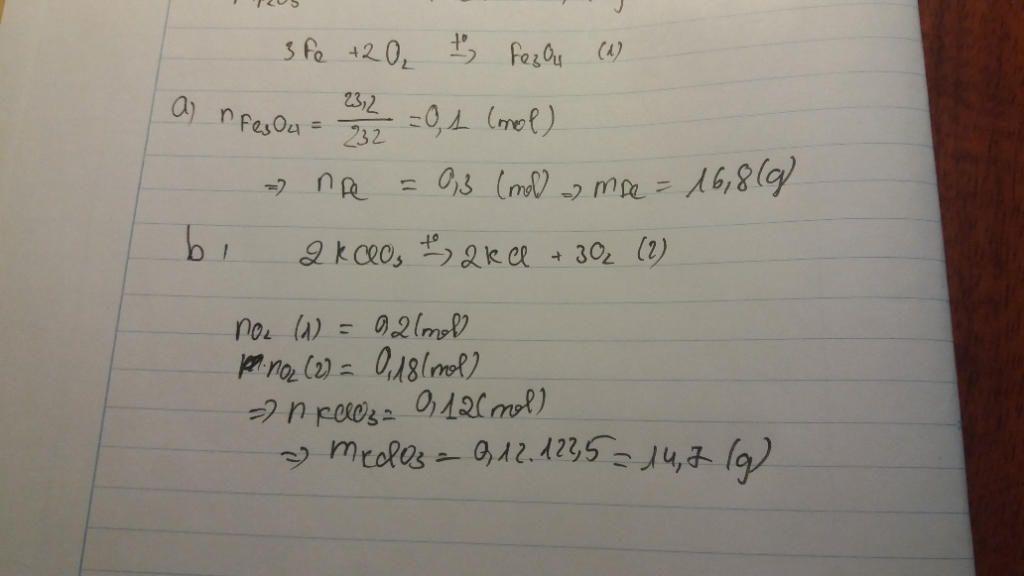 3Fe + 2O₂ t° → Fe₃O₄ (1)
a) nFe₃O₄ = 23,2 / 232 = 0,1 (mol)
=> nFe = 0,3 (mol) => mFe = 16,8 (g)
b, 2KClO₃ t° → 2KCl + 3O₂ (2)
nO₂ (1) = 0,2 (mol)
nO₂ (2) = 0,18 (mol)
=> nKClO₃ = 0,12 (mol)
=> mKClO₃ = 0,12.123,5 = 14,7 (g)